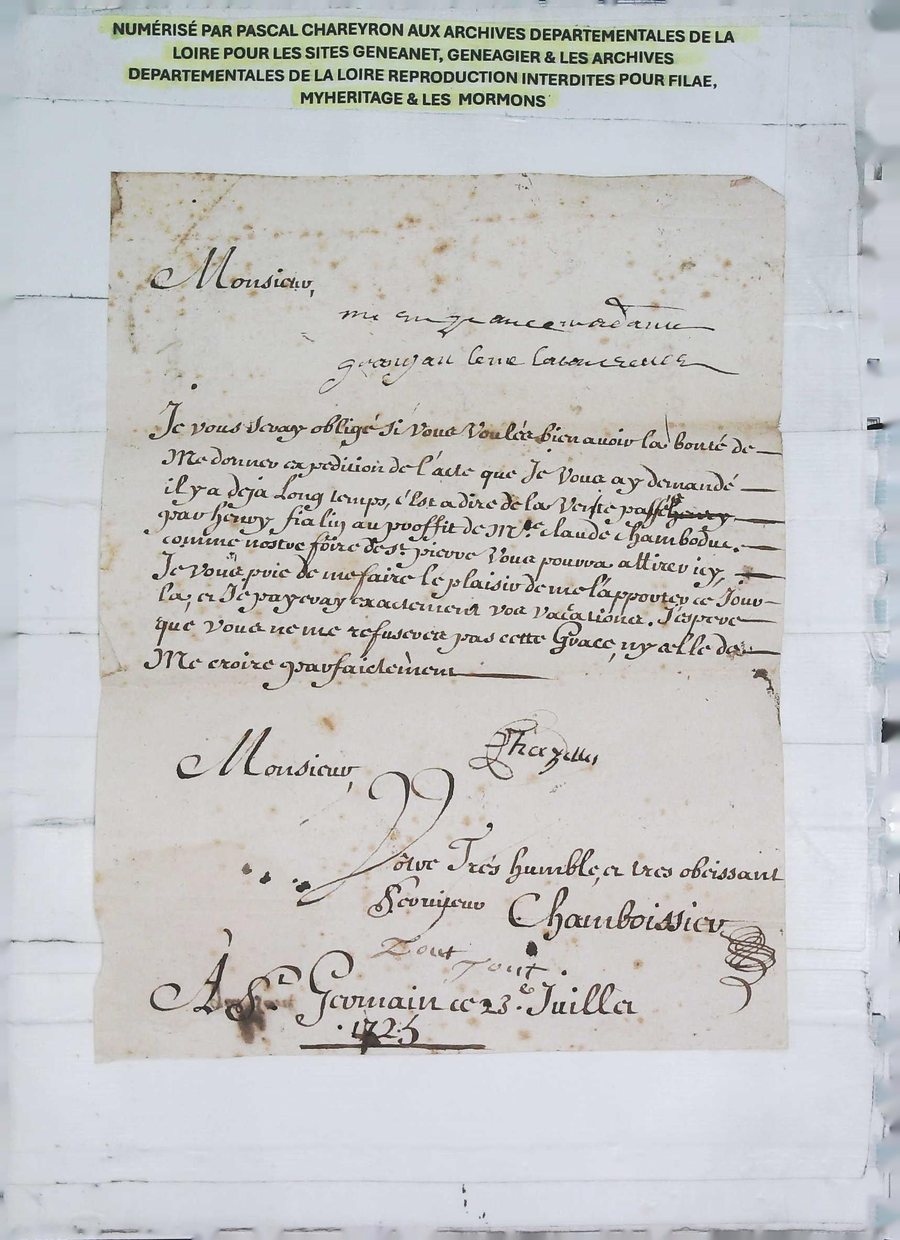 NUMÉRISÉ PAR PASCAL CHAREYRON AUX ARCHIVES DEPARTEMENTALES DE LA
LOIRE POUR LES SITES GENEANET, GENEAGIER & LES ARCHIVES
DEPARTEMENTALES DE LA LOIRE REPRODUCTION INTERDITES POUR FILAE,
MYHERITAGE & LES MORMONS
Monsieur,
Je vous seray obligé si vous voulés bien avoir la bonté de
Me donner expedition de l'acte que Je vous ay demandé
il y a deja Long temps, c'est a dire de la Vente passée
par henry fialin au proffit de Mre claude Chamboduc.
comme nostre foire de st pierre vous pourra attirer icy,
Je vous prie de me faire le plaisir de me l'apporter ce Jour
la, et Je payeray exactement vos vacations. J'espere
que vous ne me refuserés pas cette Grace, ny celle de
Me croire parfaictement
Monsieur,
Vôtre Trés humble, et tres obeissant
Serviteur Chamboissier
Tout
Tout
A St. Germain ce 23e Juillet
1725